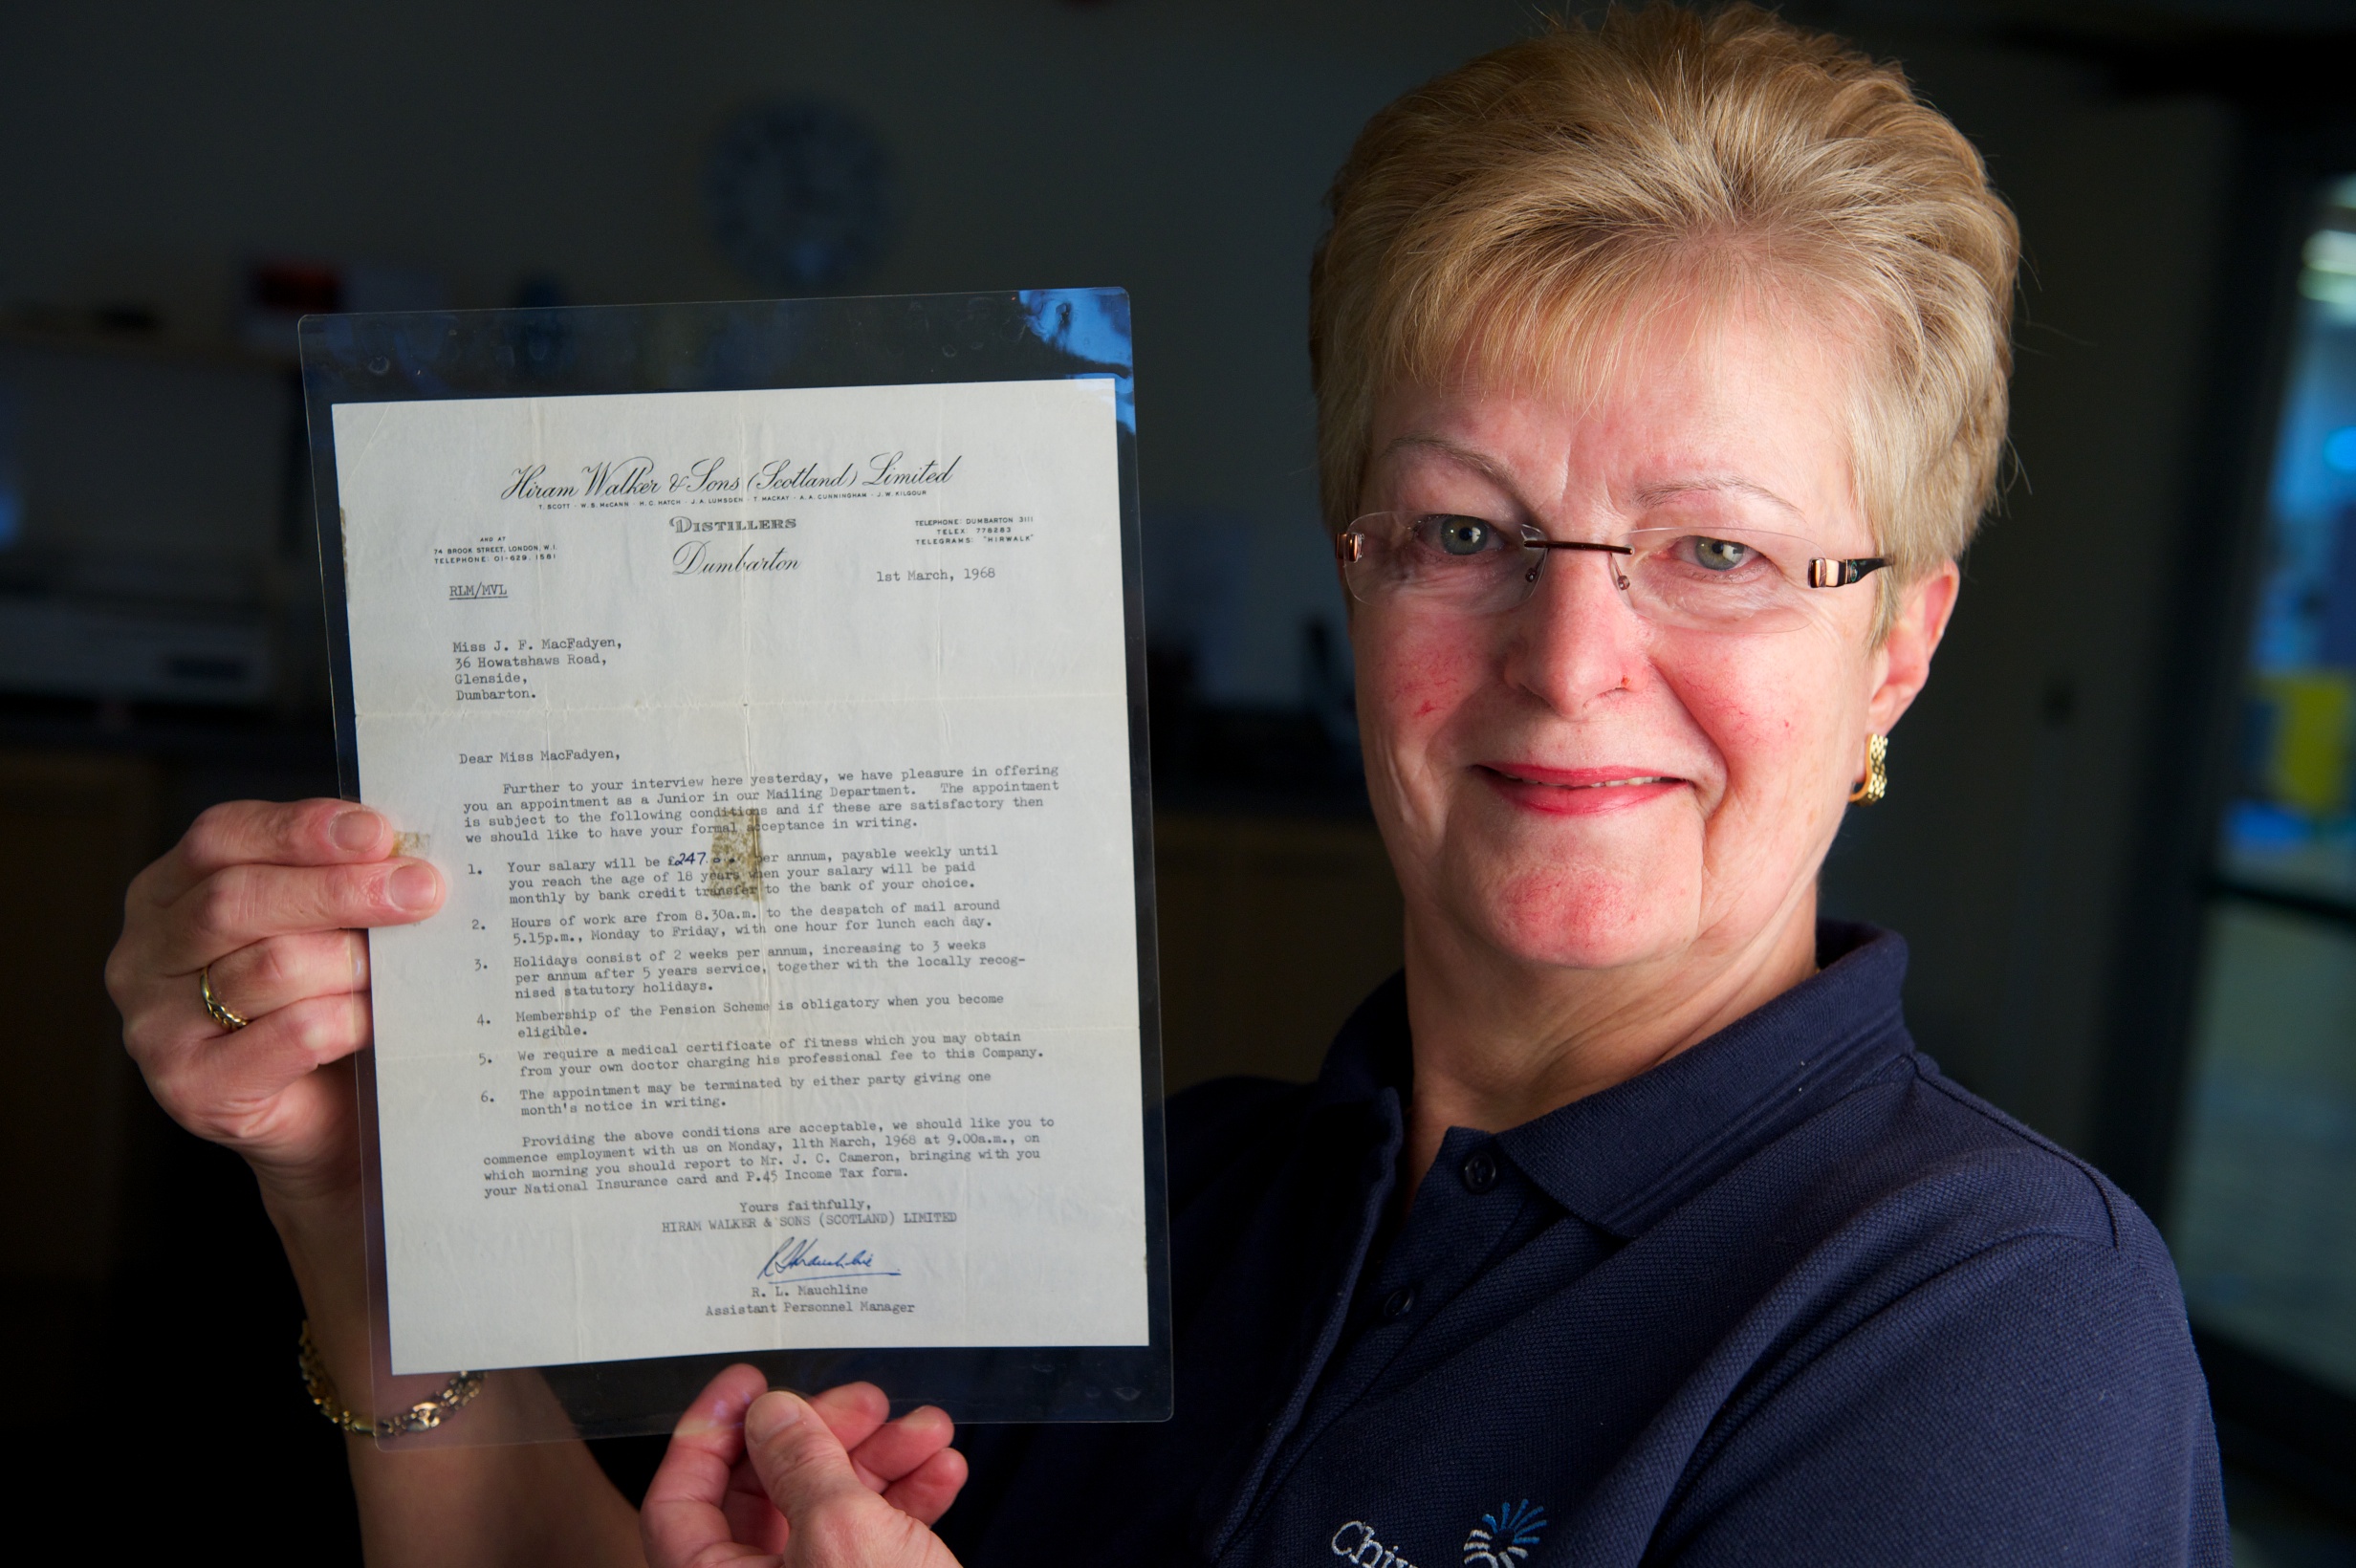 Hiram Walker & Sons (Scotland) Limited
T. SCOTT - W. S. McCANN - H. C. HATCH - J. A. LUMSDEN - T. MACKAY - A. A. CUNNINGHAM - J. W. KILGOUR
DISTILLERS
Dumbarton
AND AT
74 BROOK STREET, LONDON, W.I.
TELEPHONE: 01-629. 1581
TELEPHONE: DUMBARTON 3111
TELEX 778283
TELEGRAMS: "HIRWALK"
RLM/MVL
1st March, 1968
Miss J. F. MacFadyen,
36 Howatshaws Road,
Glenside,
Dumbarton.
Dear Miss MacFadyen,
Further to your interview here yesterday, we have pleasure in offering
you an appointment as a Junior in our Mailing Department. The appointment
is subject to the following conditions and if these are satisfactory then
we should like to have your formal acceptance in writing.
1. Your salary will be £247. per annum, payable weekly until
you reach the age of 18 years when your salary will be paid
monthly by bank credit transfer to the bank of your choice.
2. Hours of work are from 8.30a.m. to the despatch of mail around
5.15p.m., Monday to Friday, with one hour for lunch each day.
3. Holidays consist of 2 weeks per annum, increasing to 3 weeks
per annum after 5 years service, together with the locally recog-
nised statutory holidays.
4. Membership of the Pension Scheme is obligatory when you become
eligible.
5. We require a medical certificate of fitness which you may obtain
from your own doctor charging his professional fee to this Company.
6. The appointment may be terminated by either party giving one
month's notice in writing.
Providing the above conditions are acceptable, we should like you to
commence employment with us on Monday, 11th March, 1968 at 9.00a.m., on
which morning you should report to Mr. J. C. Cameron, bringing with you
your National Insurance card and P.45 Income Tax form.
Yours faithfully,
HIRAM WALKER & SONS (SCOTLAND) LIMITED
R. L. Mauchline
Assistant Personnel Manager